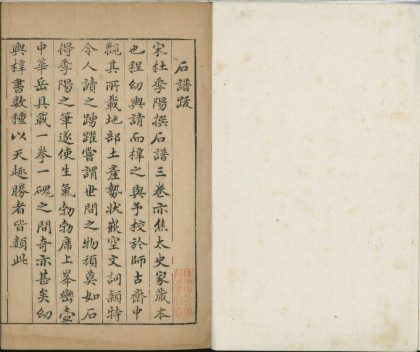 石譜跋
宋杜季陽撰石譜三卷亦焦太史家藏本
也程幼輿請而梓之與予校於師古齋中
觀其所載地部土產勢狀嵌空文詞穎特
令人讀之踴躍嘗謂世間之物頑莫如石
得季陽之筆遂使生氣勃勃席上峯巒壺
中華岳具載一拳一磈之間奇亦甚矣幼
輿梓書數種以天趣勝者皆類此